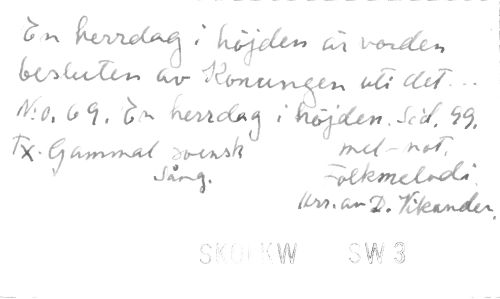 En herrdag i höjden är vorden
besluten av Konungen uti det...
N:o. 69. En herrdag i höjden. Sid. 99.
Tx. Gammal svensk mel-not.
Sång. Folkmelodi.
Arr. av D. Wikander.
SW 3